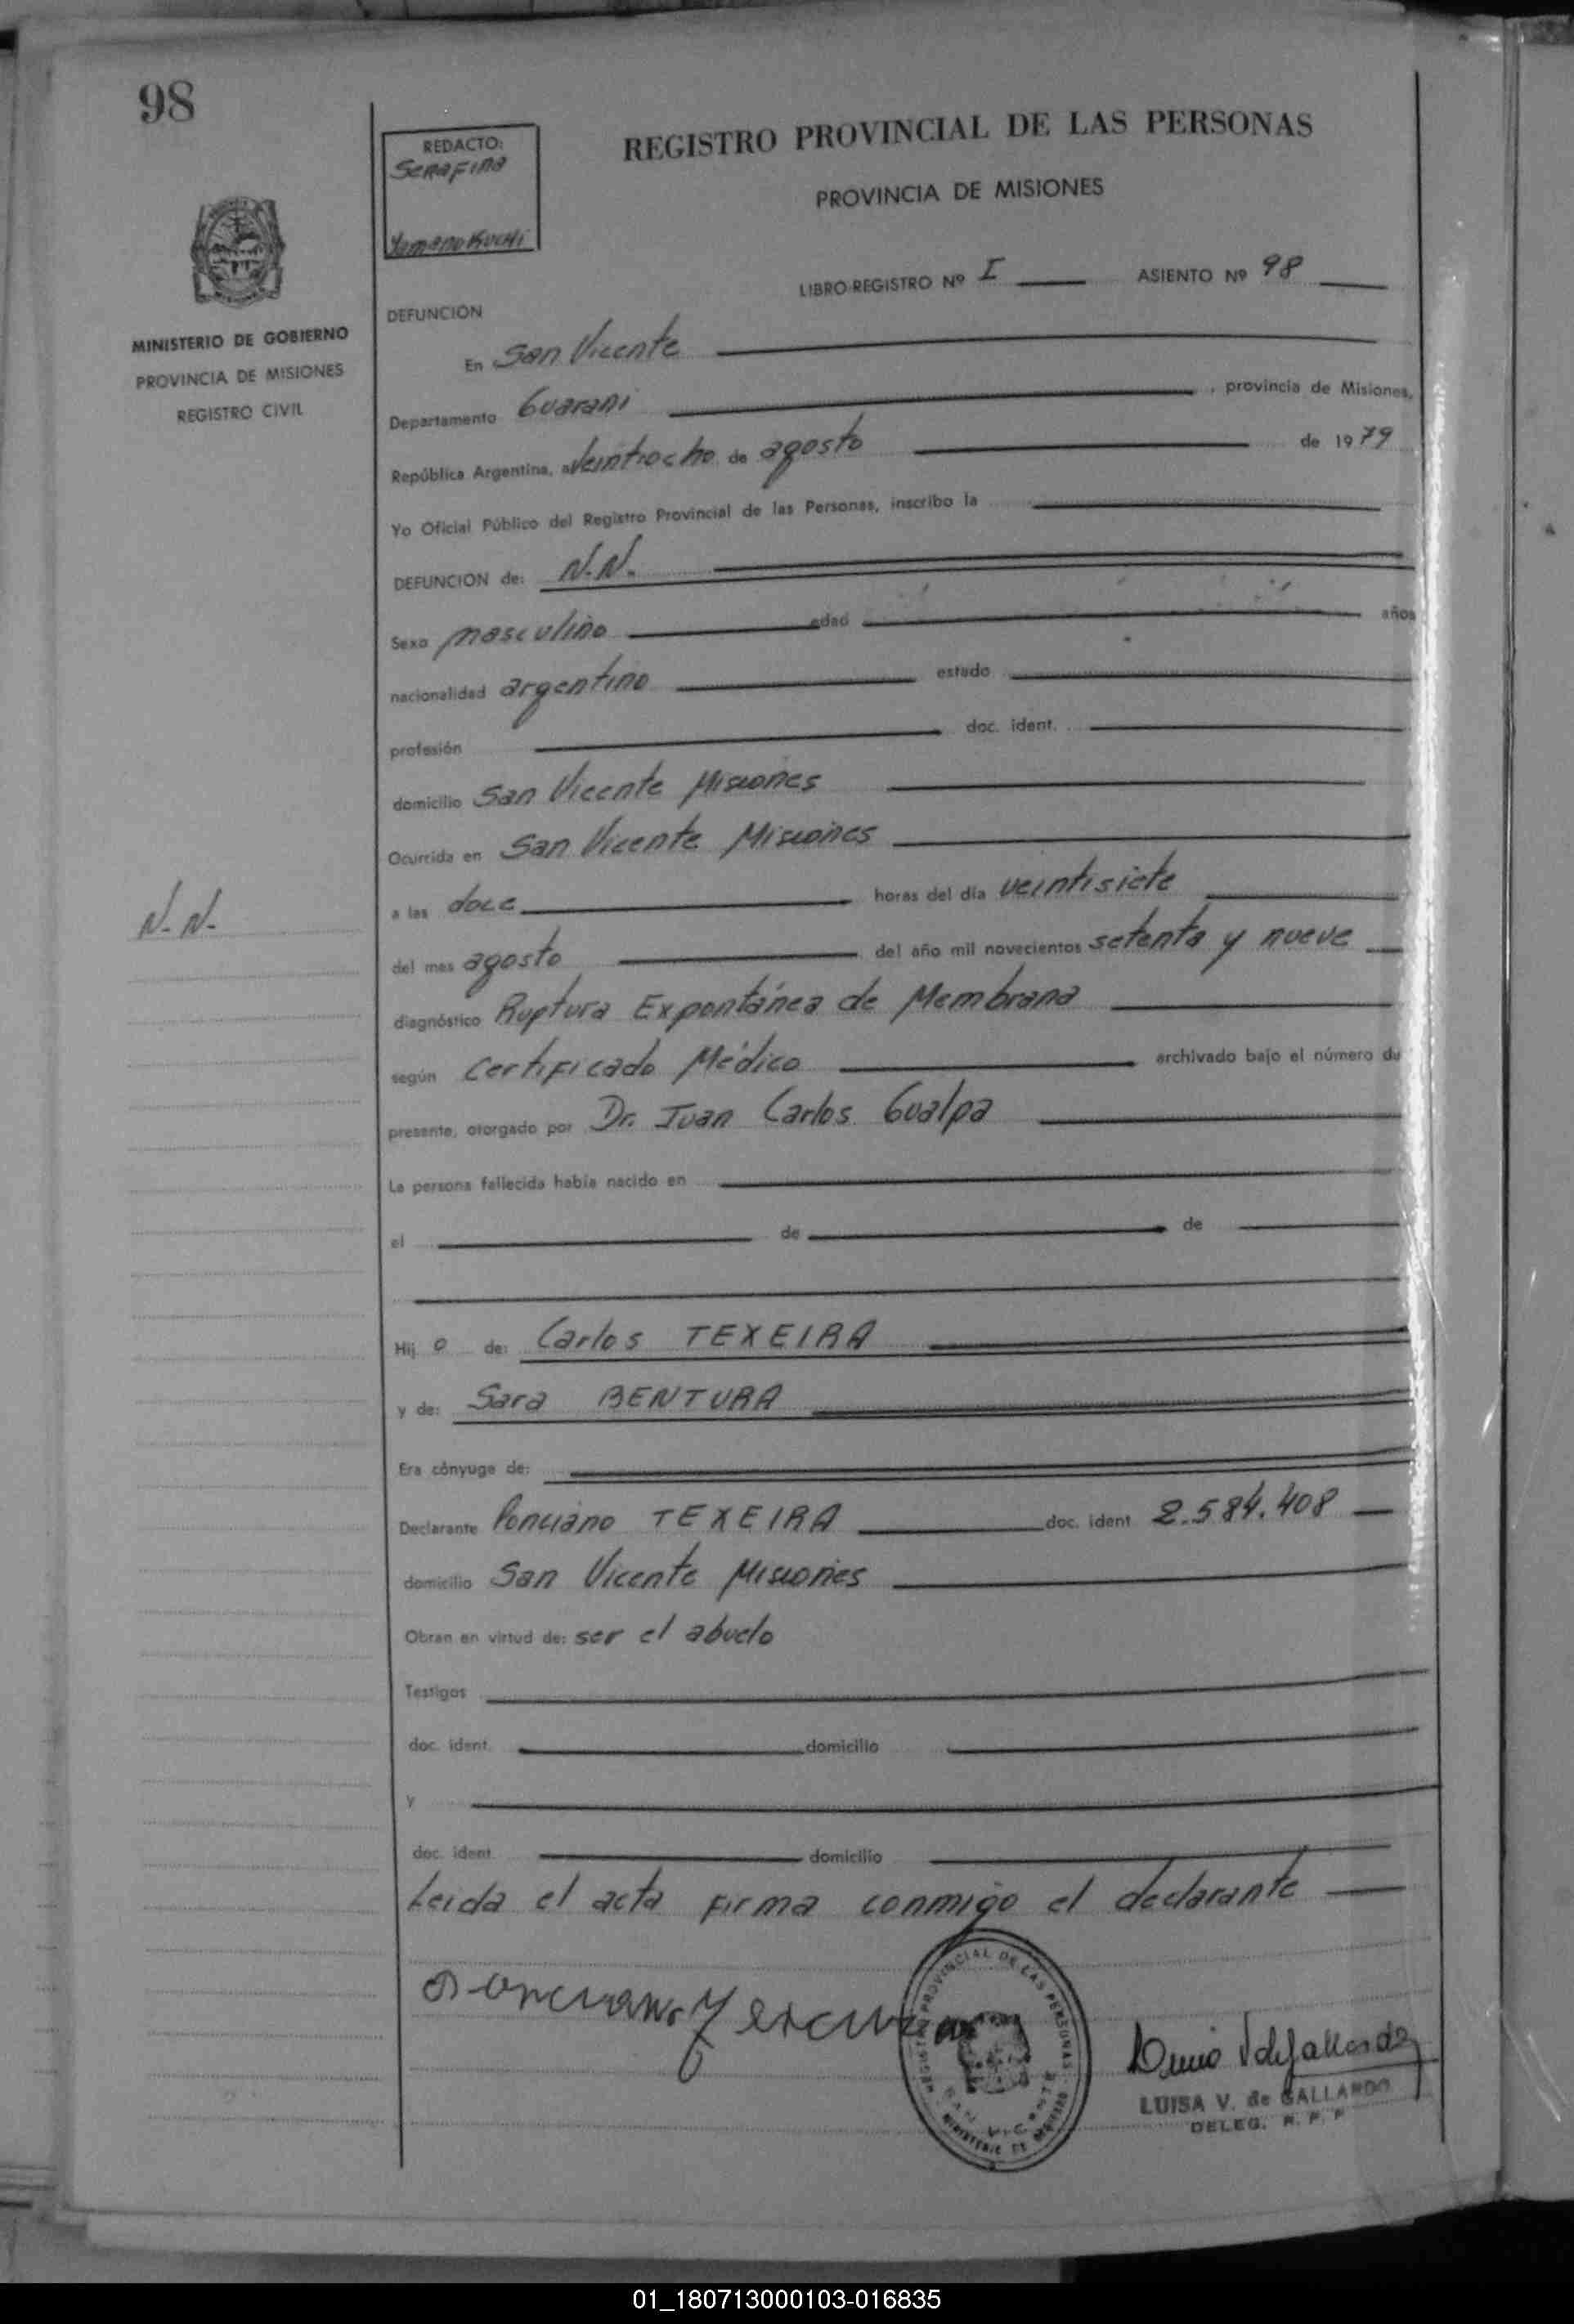 98
REDACTO:
Serafina
Yamanokuchi
REGISTRO PROVINCIAL DE LAS PERSONAS
PROVINCIA DE MISIONES
LIBRO-REGISTRO Nº I ASIENTO Nº 98
MINISTERIO DE GOBIERNO
PROVINCIA DE MISIONES
REGISTRO CIVIL
DEFUNCION
En San Vicente
Departamento Guarani , provincia de Misiones,
República Argentina, a veintiocho de agosto de 1979
Yo Oficial Público del Registro Provincial de las Personas, inscribo la
DEFUNCION de: N.N.
Sexo masculino edad años
nacionalidad argentino estado
profesión doc. ident.
domicilio San Vicente Misiones
Ocurrida en San Vicente Misiones
N. N.
a las doce horas del día veintisiete
del mes agosto del año mil novecientos setenta y nueve
diagnóstico Ruptura Expontánea de Membrana
según Certificado Médico archivado bajo el número du
presente, otorgado por Dr. Juan Carlos Gualpa
La persona fallecida había nacido en
el de de
Hij o de: Carlos TEXEIRA
y de: Sara BENTURA
Era cónyuge de:
Declarante Ponciano TEXEIRA doc. ident. 2.584.408
domicilio San Vicente Misiones
Obran en virtud de: ser el abuelo
Testigos
doc. ident. domicilio
y
doc. ident. domicilio
Leida el acta firma conmigo el declarante
REGISTRO PROVINCIAL DE LAS PERSONAS
SAN VICENTE
MINISTERIO DE GOBIERNO
LUISA V. de GALLARDO
DELEG. R. P. P
01_180713000103-016835